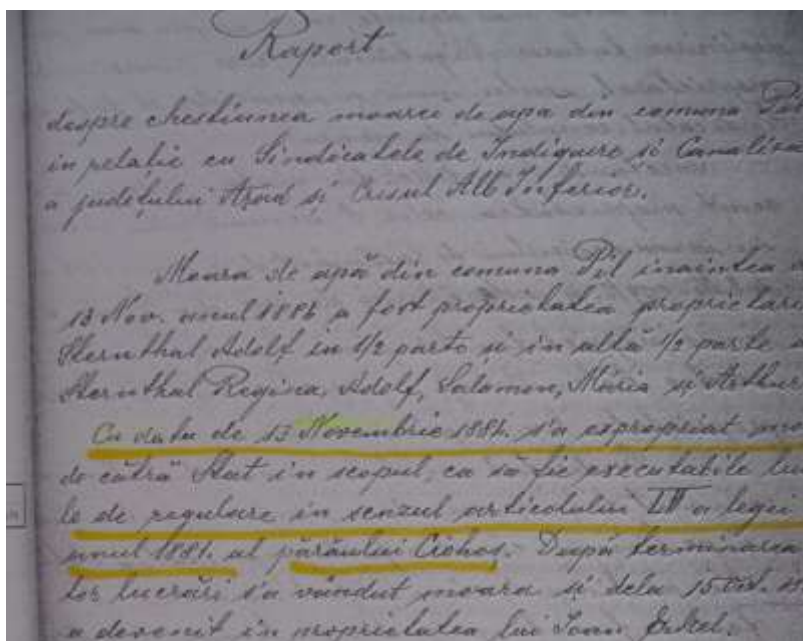 Raport
despre chestiunea moarei de apa din comuna Pil
in relație cu Sindicatele de Indiguire si Canaliza
a județului Arad și Crisul Alb Inferior.
Moara de apă din comuna Pil inaintea
13 Nov. anul 1886 a fost proprietatea proprietari
Sternthal Adolf in 1/2 parte si in altă 1/2 parte a
Sternthal Regina, Adolf, Salamon, Maria si Arthur
Cu data de 13 Novembrie 1886. s'a expropriat mo
de cătră Stat in scopul, ca să fie executabile lu
le de regulare in senzul articolului LII a legei
anul 1881. al părăului Cichos. După terminarea
lor lucrări s'a vândut moara si dela 15 Oct.
a devenit in proprietatea lui Ioan